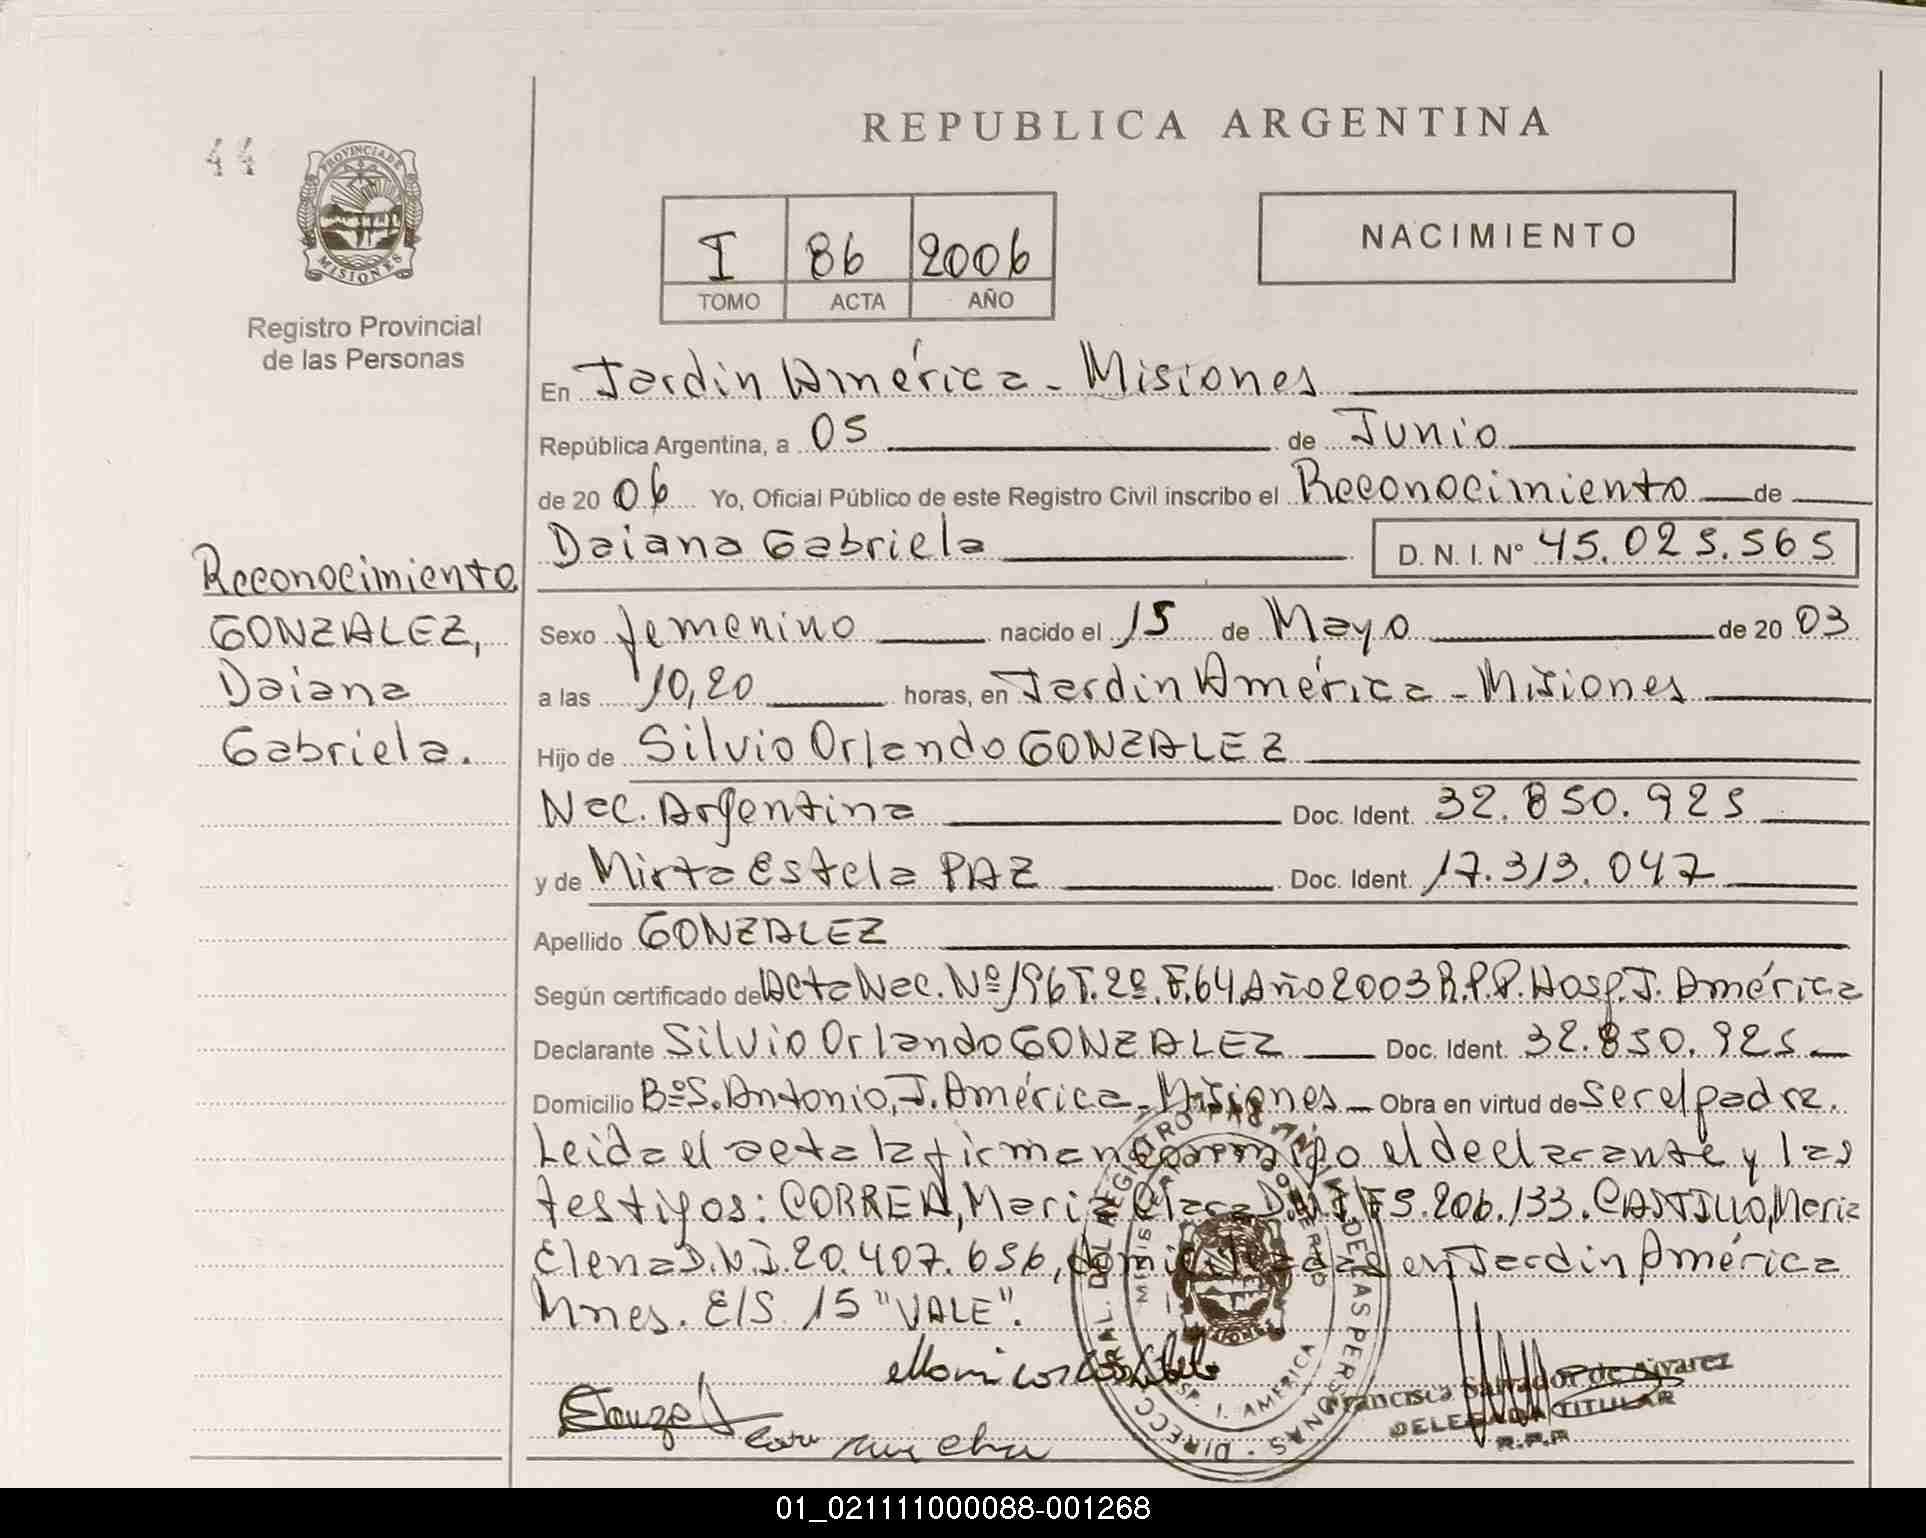 44
PROVINCIA DE
MISIONES
Registro Provincial
de las Personas
REPUBLICA ARGENTINA
I 86 2006
TOMO ACTA AÑO
NACIMIENTO
En Jardín América - Misiones
República Argentina, a 05 de Junio
de 20 06 Yo, Oficial Público de este Registro Civil inscribo el Reconocimiento de
Daiana Gabriela D. N. I. N° 45.025.565
Reconocimiento
GONZALEZ,
Daiana
Gabriela.
Sexo femenino nacido el 15 de Mayo de 20 03
a las 10,20 horas, en Jardín América - Misiones
Hijo de Silvio Orlando GONZALEZ
Nac. Argentina Doc. Ident. 32.850.925
y de Mirta Estela PAZ Doc. Ident. 17.313.047
Apellido GONZALEZ
Según certificado de Acta Nac. Nº 196 T. 2º F. 64 Año 2003 R.P.P. Hosp. J. América
Declarante Silvio Orlando GONZALEZ Doc. Ident. 32.850.925
Domicilio Bº S. Antonio, J. América - Misiones - Obra en virtud de ser el padre.
Leida el acta la firman conmigo el declarante y las
testigos: CORREA, Maria Clara D.N.I. 5.206.133. CASTILLO, Maria
Elena D.N.I. 20.407.656, domiciliadas en Jardín América
Mnes. E/S. 15 "VALE".
Francisca Salvador de Alvarez
DELEGADA TITULAR
R.P.P.
01_021111000088-001268